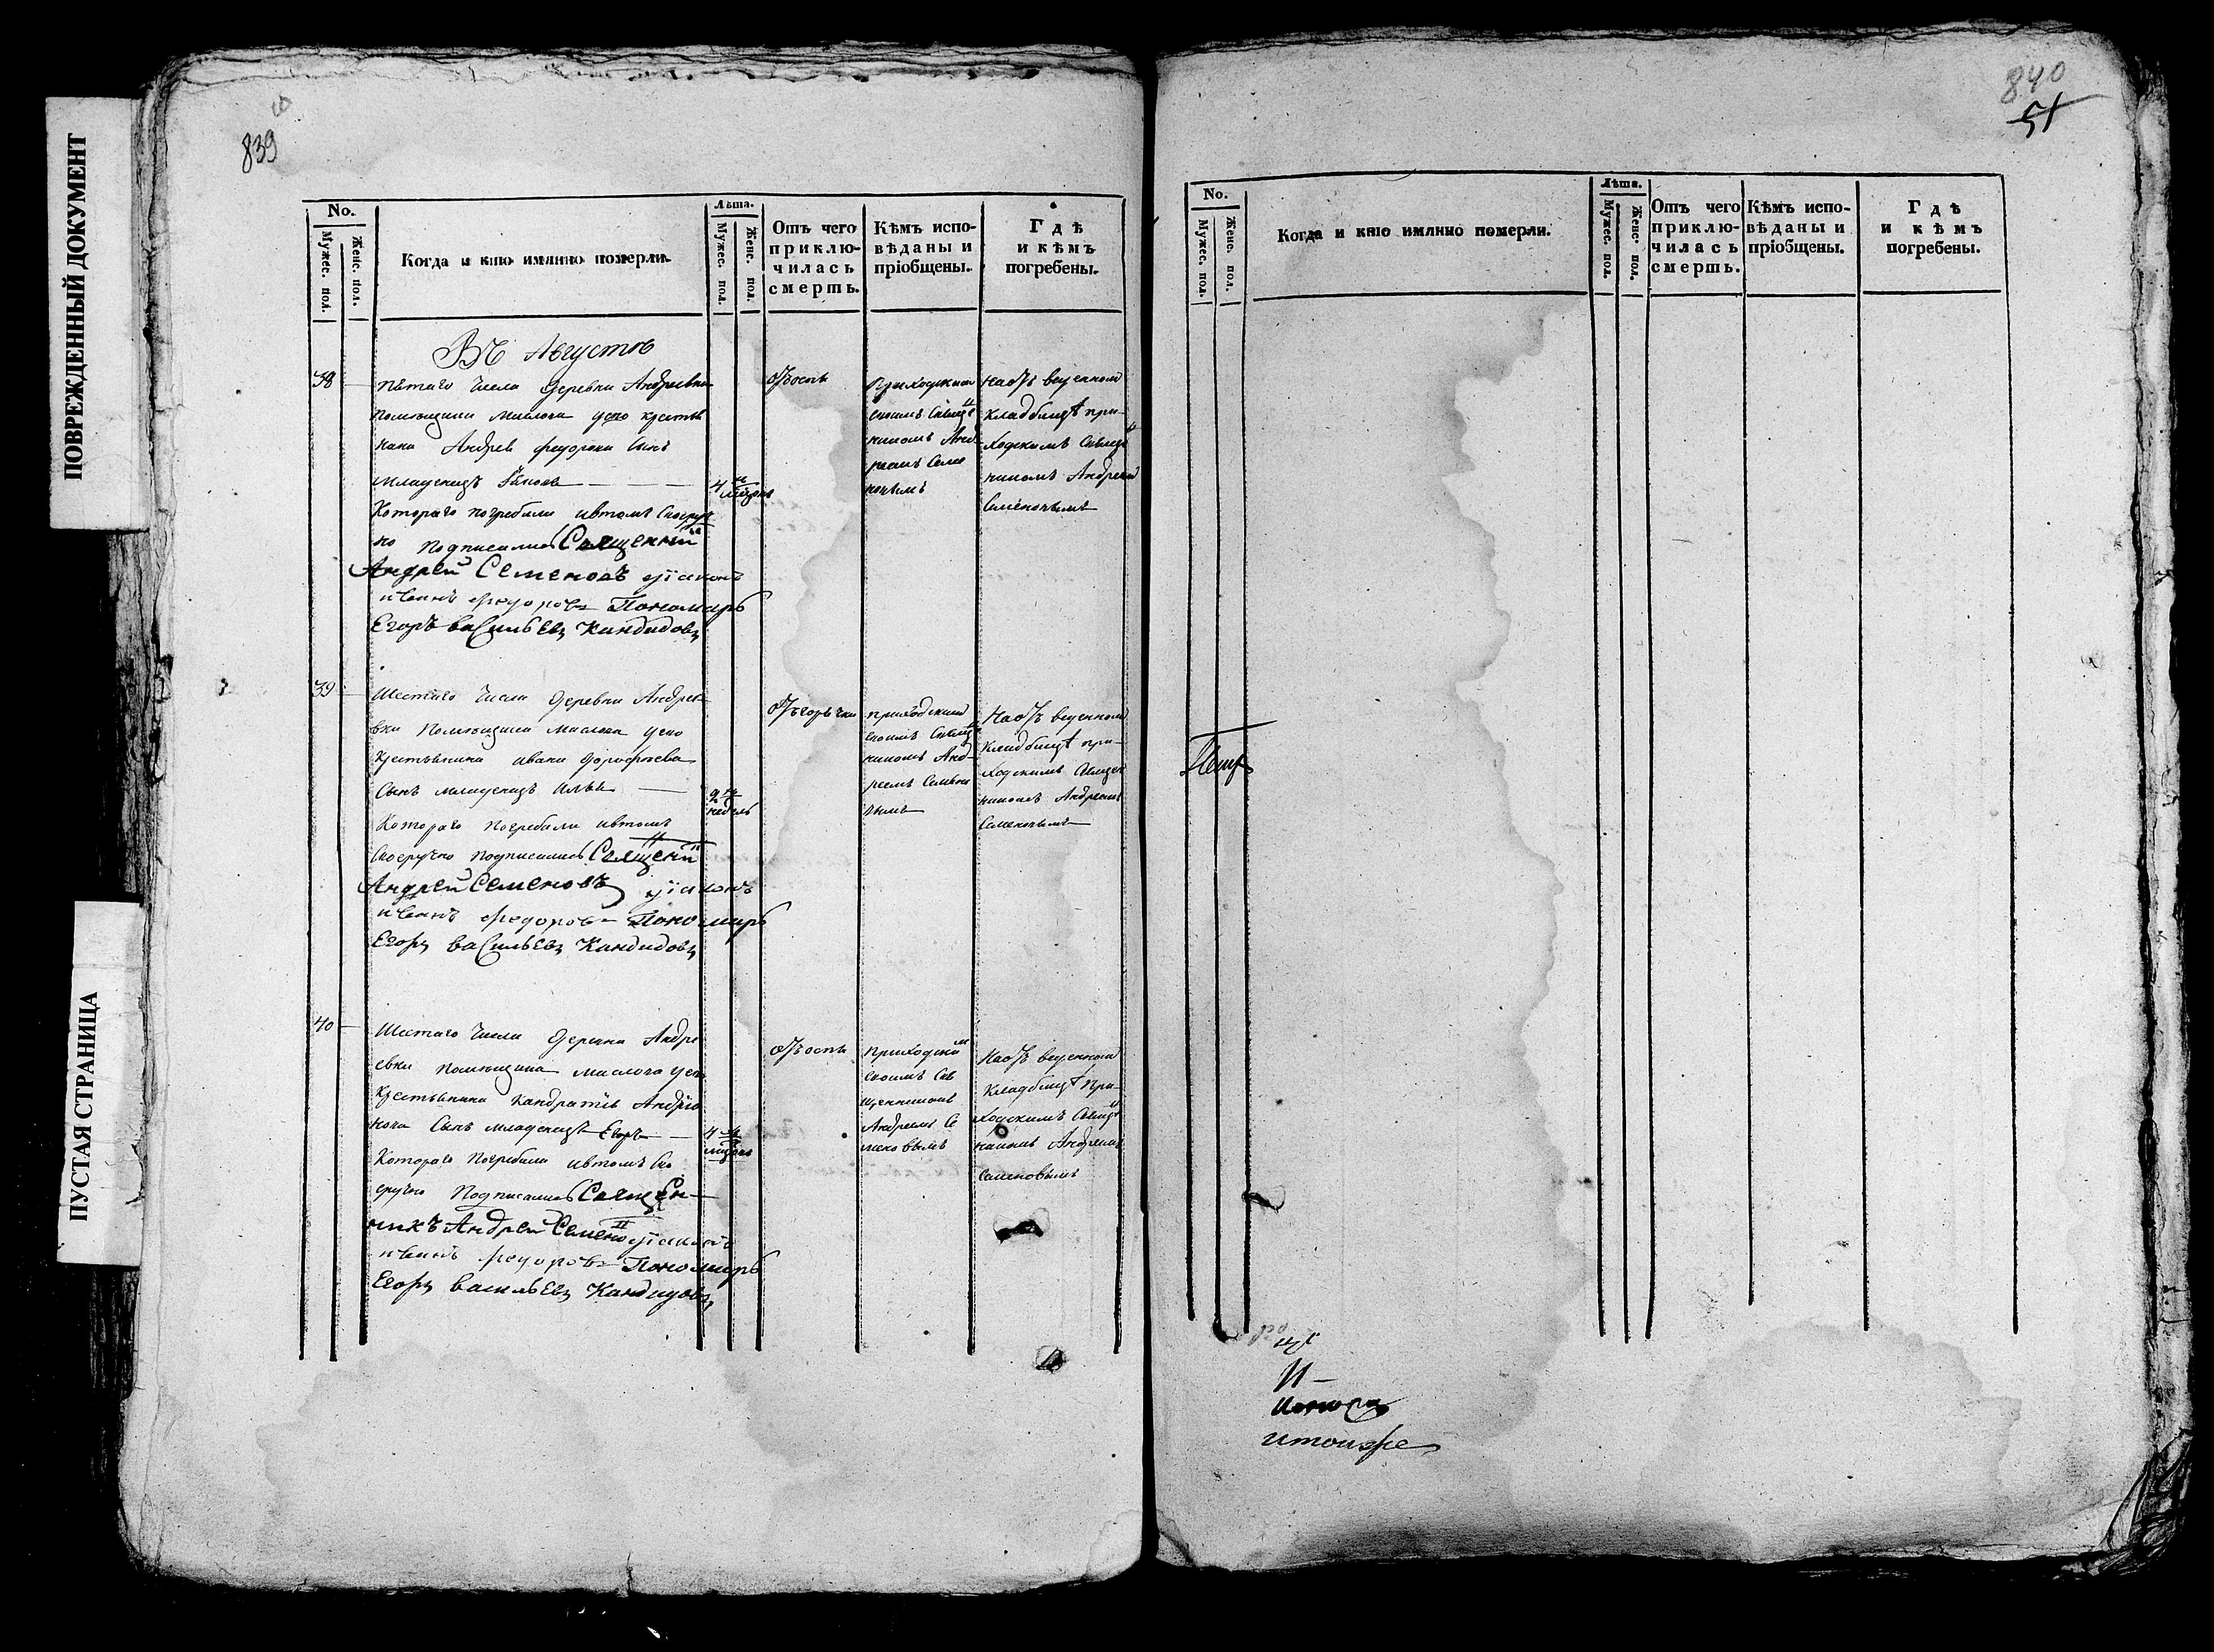 ПОВРЕЖДЕННЫЙ ДОКУМЕНТ
ПУСТАЯ СТРАНИЦА
839
No.
Мужес. пол.
Женс. пол.
Когда и кто имянно померли.
Лѣта.
Мужес. пол.
Женс. пол.
Отъ чего
приклю-
чилась
смерть.
Кѣмъ испо-
вѣданы и
пріобщены.
Гдѣ
и кѣмъ
погребены.
Въ Августѣ
38
Пятаго числа деревни Андреевки
помѣщика Маслова дело крестья
нина Андрея Федорова сынъ
младенецъ
4
Котораго погребали ивтомъ своеруч
но подписались Священни
Андрей Семеновъ діаконъ
иванъ федоровъ Пономарь
Егоръ васильевъ Кандидовъ
отъ оспы
Приходским
своимъ Свяще
никомъ Анд
реемъ Семе
новымъ
На отъ веденном
кладбищѣ при-
ходскимъ Свяще
никомъ Андреем
Семеновымъ
39
Шестаго числа деревни Андрее
вки помѣщика Маслова дело
крестьянина ивана дорофѣева
сынъ младенецъ илья
9
недель
Котораго погребали ивтомъ
своеручно подписались Священи
Андрей Семеновъ діаконъ
иванъ федоровъ Пономарь
Егоръ васильевъ Кандидовъ
отъ горячки
приходским
своимъ Свяще
никомъ Анд-
реемъ Семено
вымъ
На отъ веденном
кладбищѣ при-
ходскимъ Свяще
никомъ Андреемъ
Семеновымъ
40
Шестаго числа деревни Андре
евки помѣщика маслова дело
крестьянина кандратия Андрiо
нова сынъ младенецъ Егоръ
4
Котораго погребали ивтомъ сво
еручно подписались Священ-
никъ Андрей Семено діаконъ
иванъ федоровъ Пономарь
Егоръ васильевъ Кандидовъ
отъ оспы
Приходским
своимъ Свя
щенникомъ
Андреемъ Се
меновымъ
На отъ веденном
кладбищѣ при-
ходскимъ Свяще
никомъ Андреемъ
Семеновымъ
840
51
No.
Мужес. пол.
Женс. пол.
Когда и кто имянно померли.
Лѣта.
Мужес. пол.
Женс. пол.
Отъ чего
приклю-
чилась
смерть.
Кѣмъ испо-
вѣданы и
пріобщены.
Гдѣ
и кѣмъ
погребены.
И
итоиже